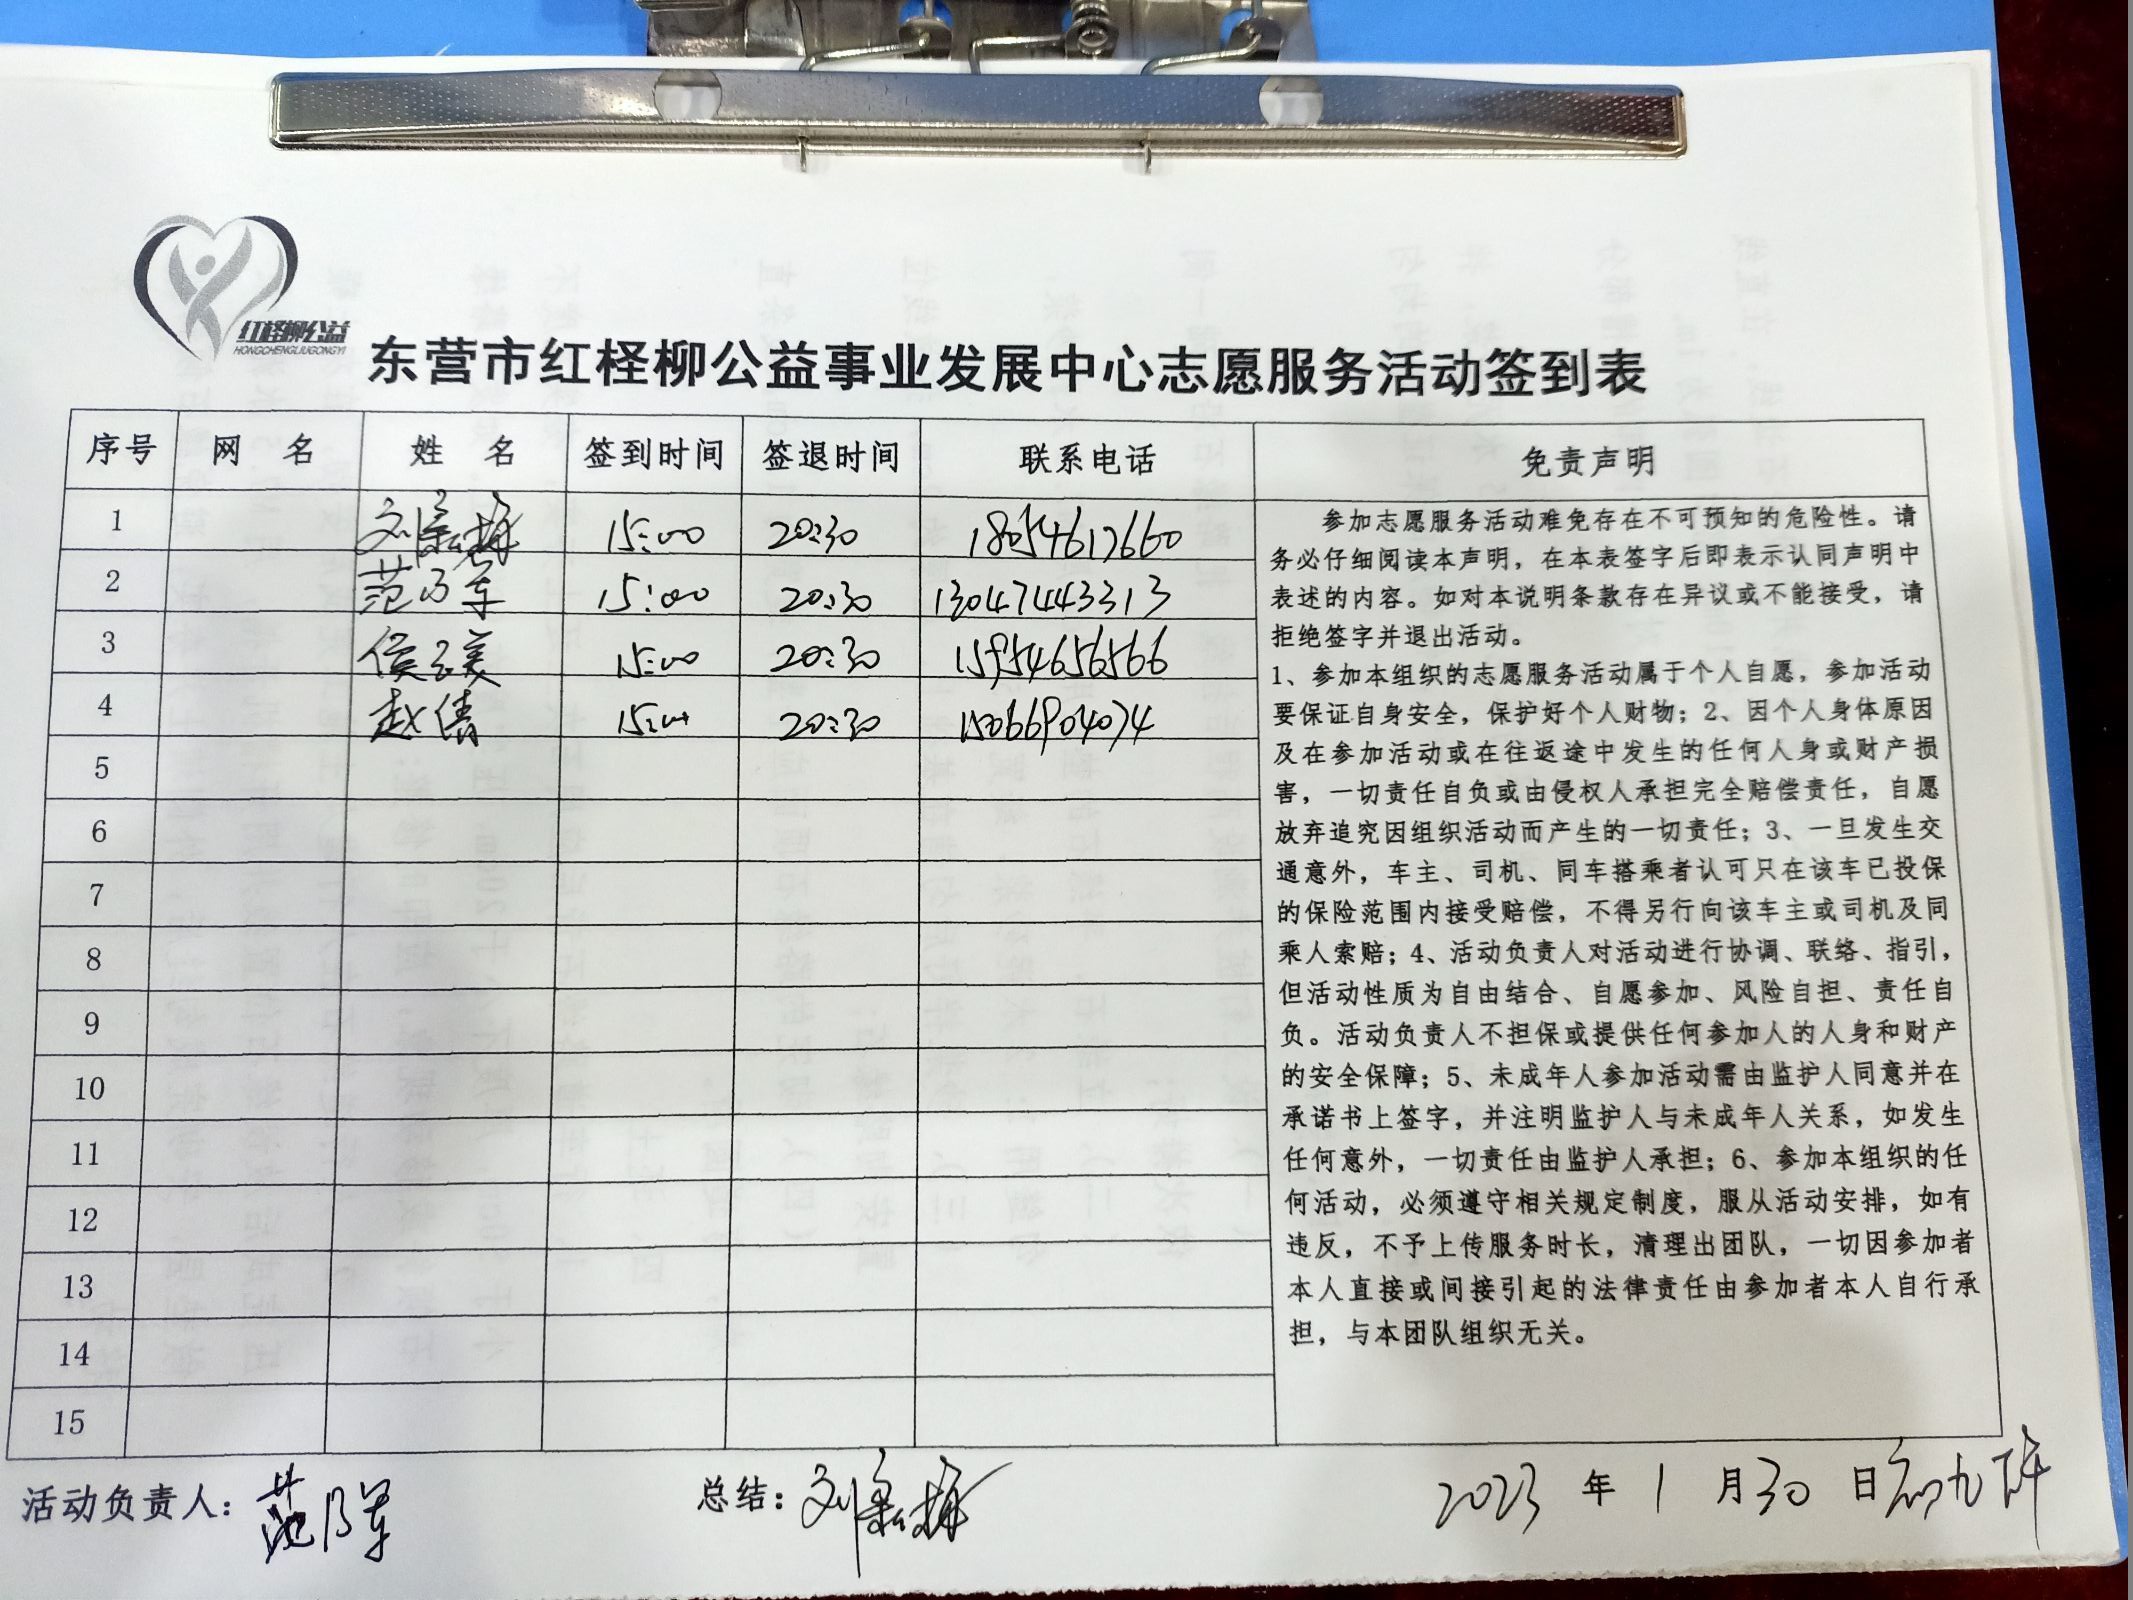 红柽柳公益
HONGCHENGLIUGONGYI
东营市红柽柳公益事业发展中心志愿服务活动签到表
序号 网 名 姓 名 签到时间 签退时间 联系电话 免责声明
1 15:00 20:30 18054617660
2 范乃军 15:00 20:30 13047443313
3 侯云美 15:00 20:30 15954656566
4 赵倩 15:00 20:30 15066904074
5
6
7
8
9
10
11
12
13
14
15
参加志愿服务活动难免存在不可预知的危险性。请
务必仔细阅读本声明，在本表签字后即表示认同声明中
表述的内容。如对本说明条款存在异议或不能接受，请
拒绝签字并退出活动。
1、参加本组织的志愿服务活动属于个人自愿，参加活动
要保证自身安全，保护好个人财物；2、因个人身体原因
及在参加活动或在往返途中发生的任何人身或财产损
害，一切责任自负或由侵权人承担完全赔偿责任，自愿
放弃追究因组织活动而产生的一切责任；3、一旦发生交
通意外，车主、司机、同车搭乘者认可只在该车已投保
的保险范围内接受赔偿，不得另行向该车主或司机及同
乘人索赔；4、活动负责人对活动进行协调、联络、指引，
但活动性质为自由结合、自愿参加、风险自担、责任自
负。活动负责人不担保或提供任何参加人的人身和财产
的安全保障；5、未成年人参加活动需由监护人同意并在
承诺书上签字，并注明监护人与未成年人关系，如发生
任何意外，一切责任由监护人承担；6、参加本组织的任
何活动，必须遵守相关规定制度，服从活动安排，如有
违反，不予上传服务时长，清理出团队，一切因参加者
本人直接或间接引起的法律责任由参加者本人自行承
担，与本团队组织无关。
活动负责人：范乃军 总结：刘 2023 年 1 月 30 日